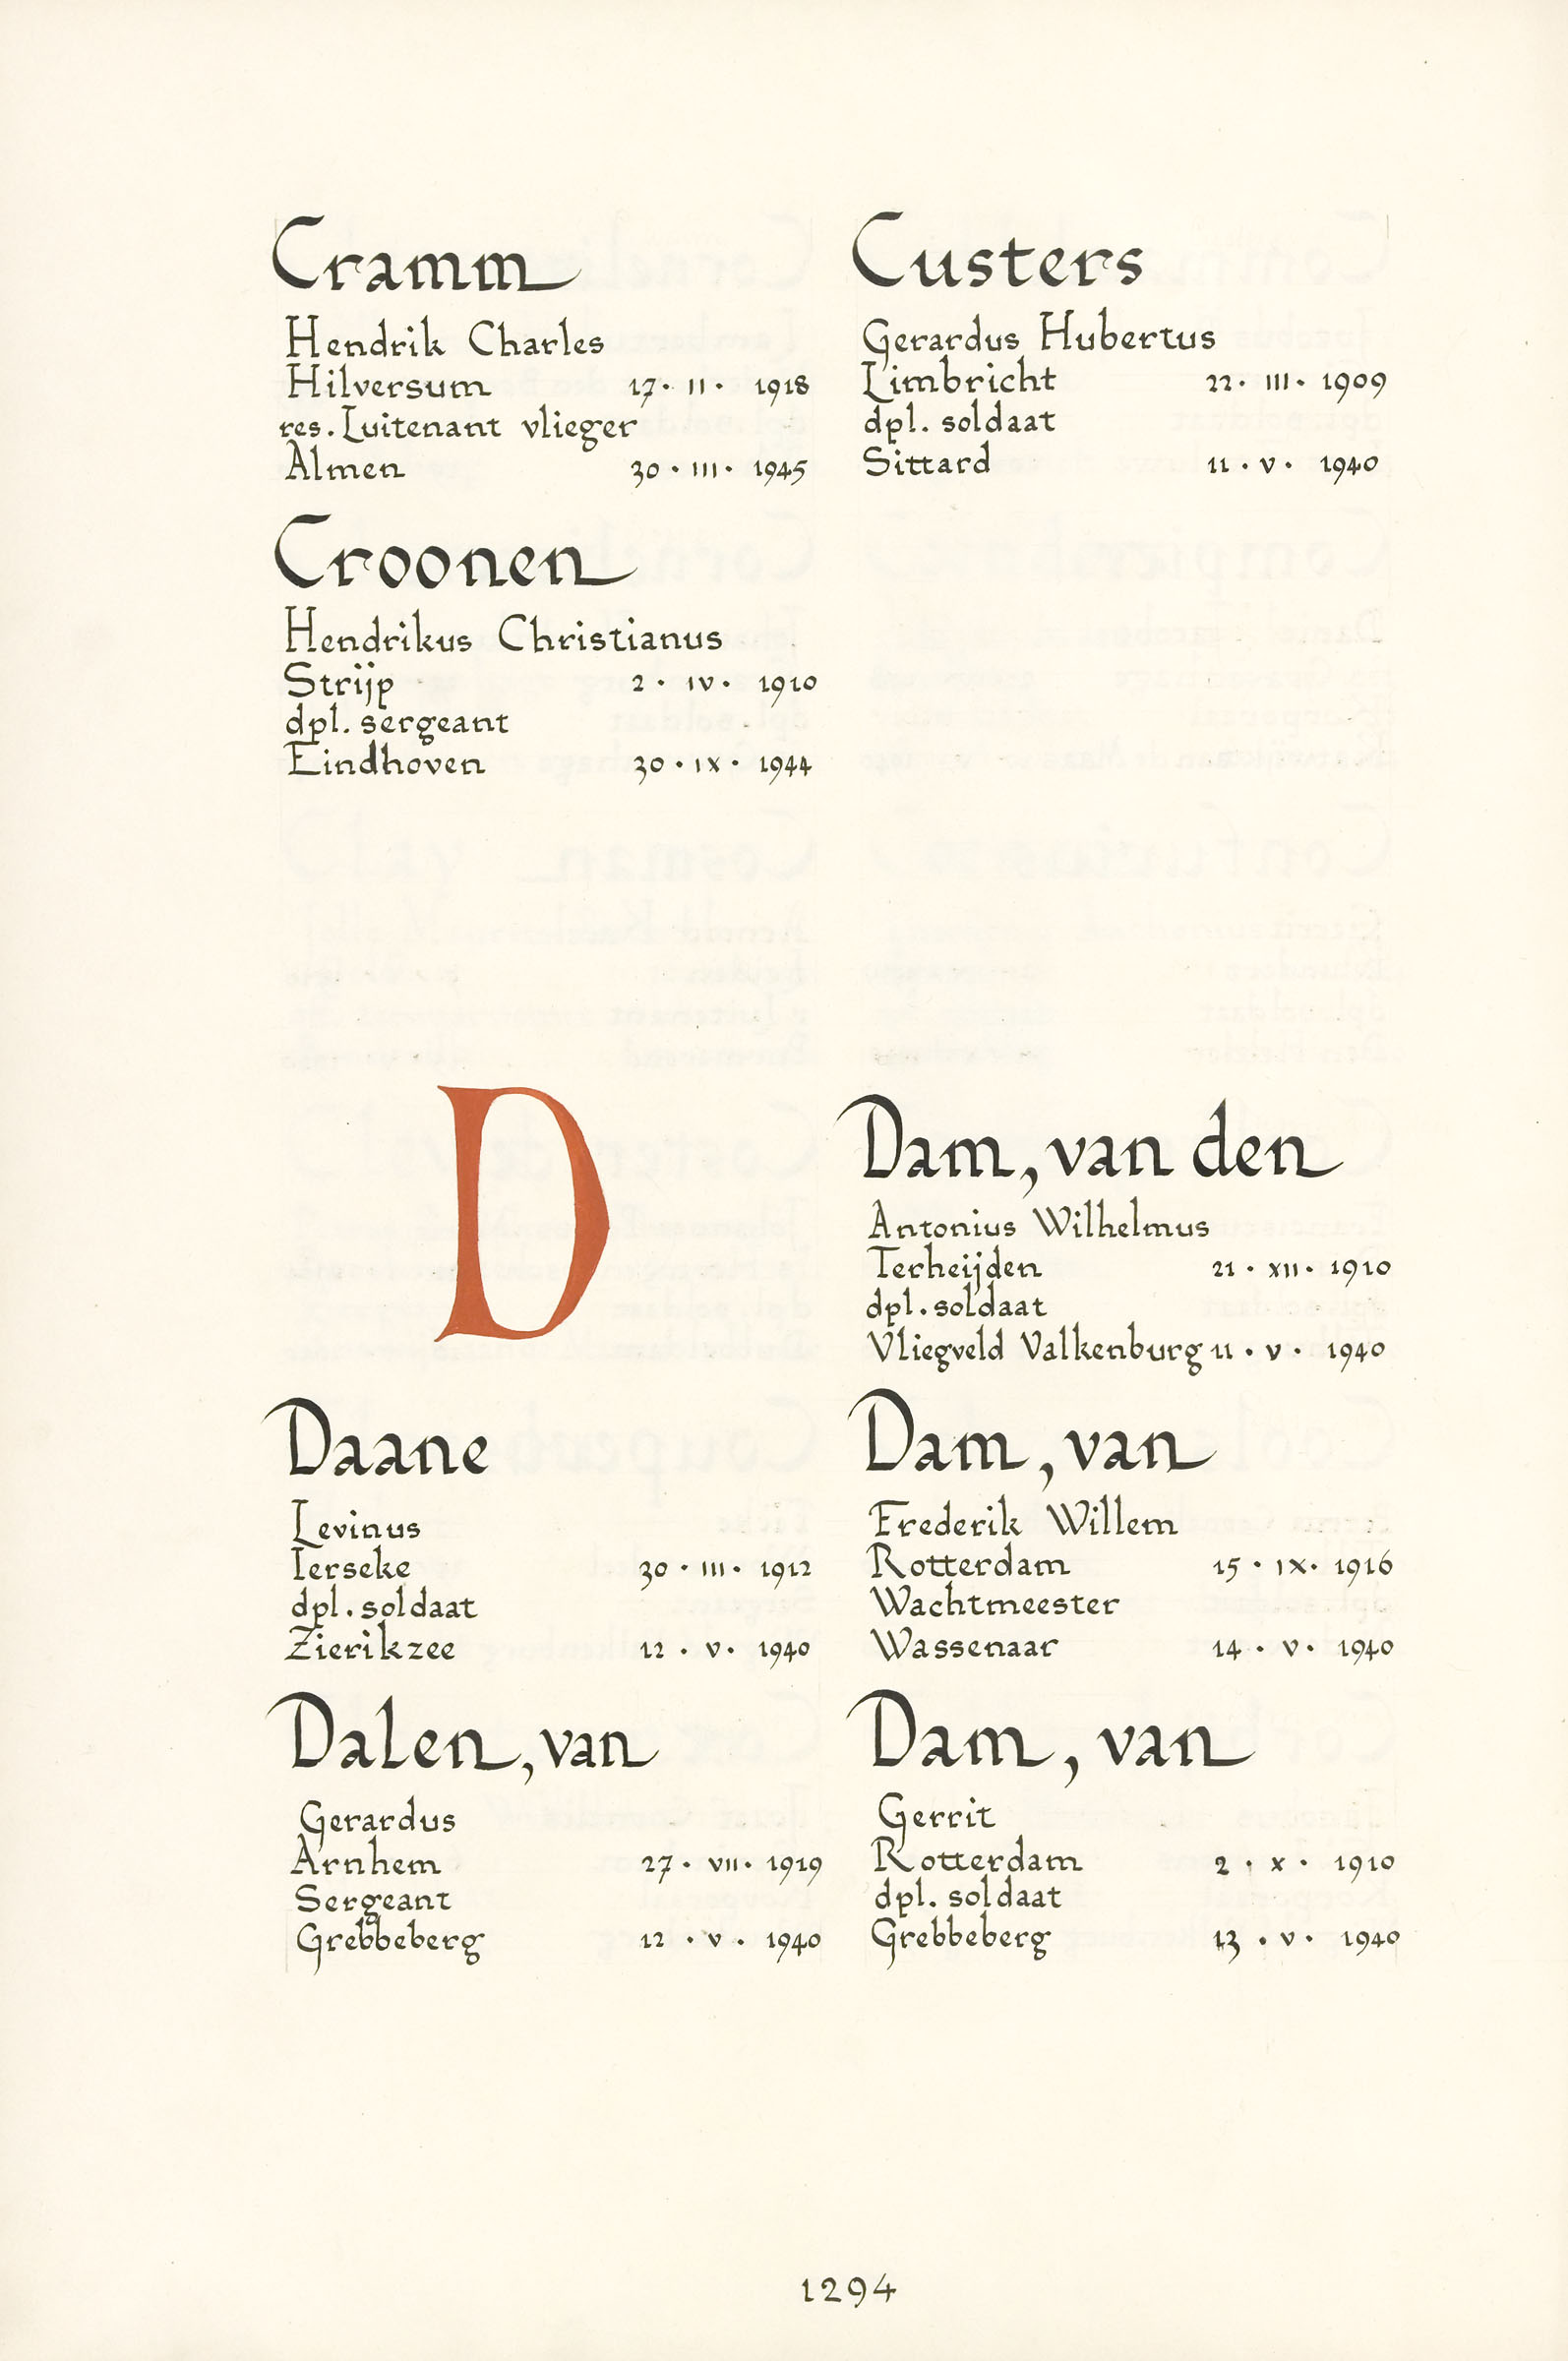 Cramm
Hendrik Charles
Hilversum 17 · II · 1918
res. Luitenant vlieger
Almen 30 · III · 1945
Croonen
Hendrikus Christianus
Strijp 2 · IV · 1910
dpl. sergeant
Eindhoven 30 · IX · 1944
Custers
Gerardus Hubertus
Limbricht 22 · III · 1909
dpl. soldaat
Sittard 11 · V · 1940
D
Daane
Levinus
Ierseke 30 · III · 1912
dpl. soldaat
Zierikzee 12 · V · 1940
Dalen, van
Gerardus
Arnhem 27 · VII · 1919
Sergeant
Grebbeberg 12 · V · 1940
Dam, van den
Antonius Wilhelmus
Terheijden 21 · XII · 1910
dpl. soldaat
Vliegveld Valkenburg 11 · V · 1940
Dam, van
Frederik Willem
Rotterdam 15 · IX · 1916
Wachtmeester
Wassenaar 14 · V · 1940
Dam, van
Gerrit
Rotterdam 2 · X · 1910
dpl. soldaat
Grebbeberg 13 · V · 1940
1294